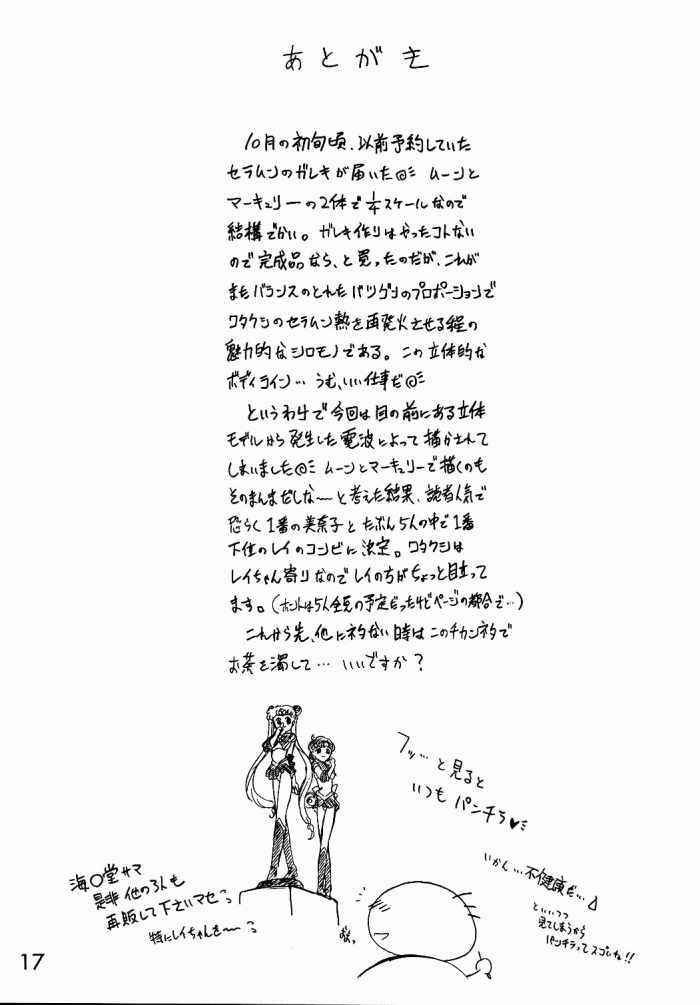 あとがき
10月の初旬頃、以前予約していた
セラムンのガレキが届いた◎ミ ムーンと
マーキュリーの2体で1/4スケールなので
結構でかい。ガレキ作りはやったコトない
ので完成品なら、と買ったのだが、これが
またバランスのとれたバツグンのプロポーションで
ワタクシのセラムン熱を再発火させる程の
魅力的なシロモノである。この立体的な
ボディライン… うむ、いい仕事だ◎ミ
というわけで今回は目の前にある立体
モデルから発生した電波によって描かされて
しまいました◎ミ ムーンとマーキュリーで描くのも
そのまんまだしな～と考えた結果、読者人気で
恐らく1番の美奈子とたぶん5人の中で1番
下位のレイのコンビに決定。ワタクシは
レイちゃん寄りなのでレイの方がちょっと目立って
ます。(ホントは5人全員の予定だったけどページの都合で…)
これから先、他にネタない時はこのチカンネタで
お茶を濁して… いいですか？
フッ…と見ると
いつもパンチラ♥ミ
海〇堂サマ
是非他の3人も
再販して下さいマセ
特にレイちゃんを～
いかん…不健康だ…
といいつつ
見てしまうから
パンチラってスゴいね!!
17